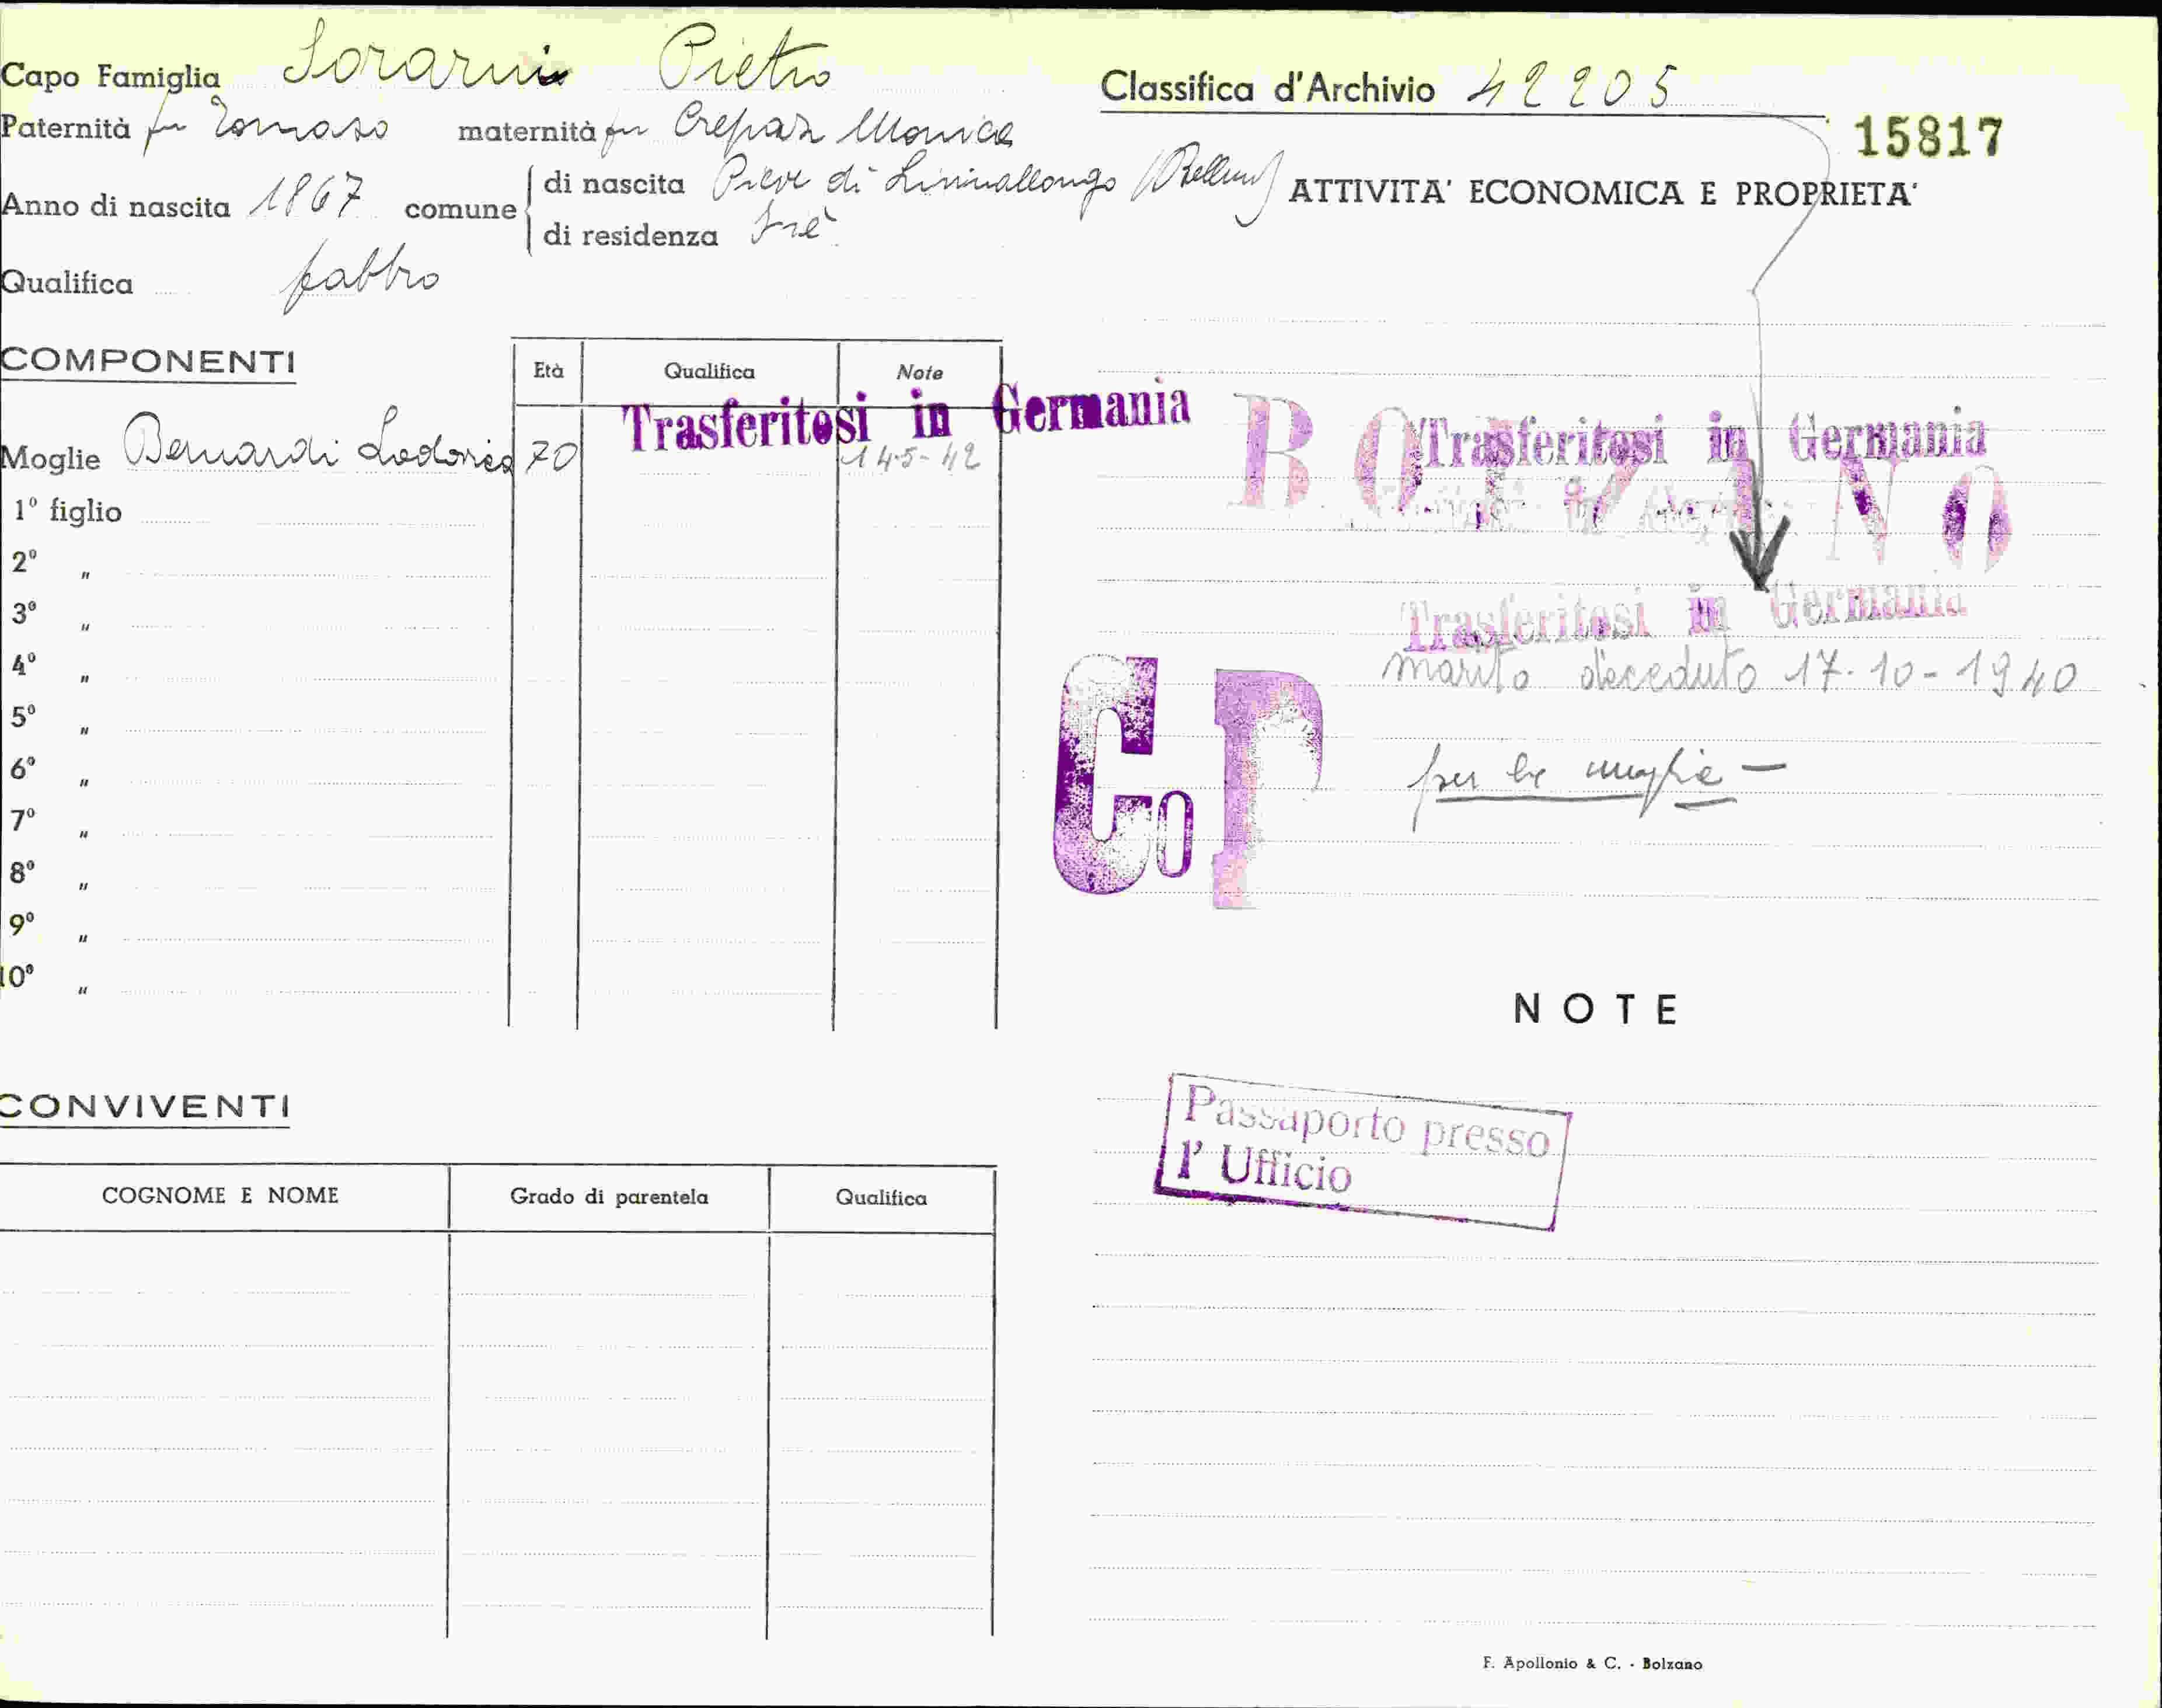 Capo Famiglia Sorarui Pietro
Paternità fu Tomaso maternità fu Crepaz Monica
Anno di nascita 1867 comune di nascita Pieve di Livinallongo (Belluno)
di residenza Fiè
Qualifica fabbro
COMPONENTI
Età Qualifica Note
Trasferitosi in Germania
Moglie Bernardi Lodovica 70 14-5-42
1º figlio
2º "
3º "
4º "
5º "
6º "
7º "
8º "
9º "
10º "
CONVIVENTI
COGNOME E NOME Grado di parentela Qualifica
Classifica d'Archivio 42205
15817
ATTIVITA' ECONOMICA E PROPRIETA'
BOLZANO
Trasferitosi in Germania
Trasferitosi in Germania
marito deceduto 17-10-1940
CoP
per la moglie —
NOTE
Passaporto presso
l' Ufficio
F. Apollonio & C. - Bolzano